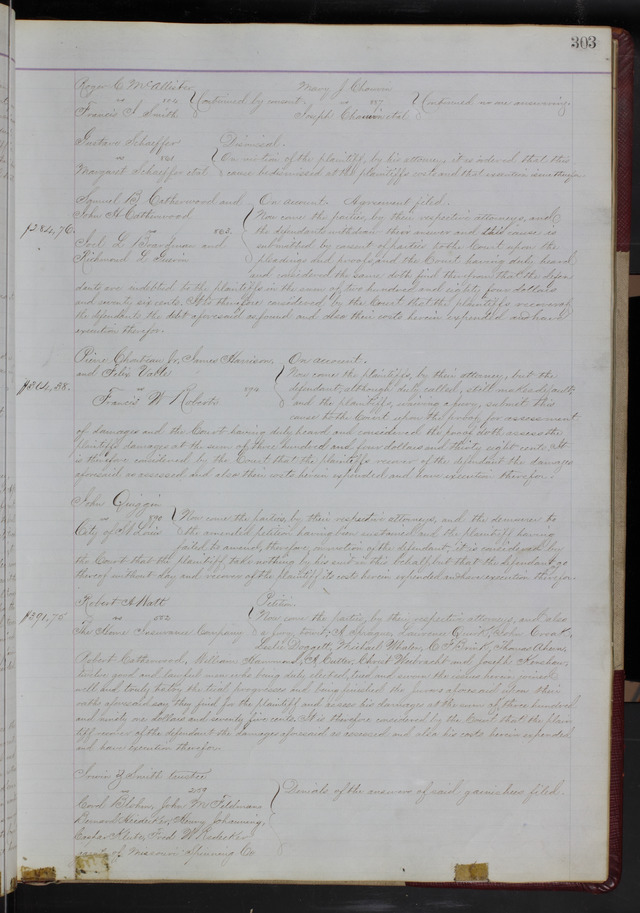 303
Roger C. McAllister
vs 154 } Continued by consent.
Francis J. Smith
Mary J. Chouvin
vs 157 } Continued no one answering.
Joseph Chouvin et al
Gustave Schaeffer Dismissal.
vs 161 } On motion of the plaintiff, by his attorney, it is ordered that this
Margaret Schaeffer et al cause be dismissed at the plaintiffs costs and that execution issue therefor.
Samuel B. Catherwood and On account. Agreement filed.
John H Catherwood Now come the parties, by their respective attorneys, and
$284,76. vs 863. the defendants withdraw their answer and this cause is
Joel L. Boardman and submitted by consent of parties to the Court upon the
Richmond L. pleadings and proofs, and the Court having duly heard
and considered the same doth find therefrom that the defen
dants are indebted to the plaintiffs in the sum of two hundred and eighty four dollars
and seventy six cents. It is therefore considered by the Court that the plaintiffs recover of
the defendants the debt aforesaid as found and also their costs herein expended and have
execution therefor.
Pierre Chouteau Jr, James Harrison, On account.
and Felix Valle Now come the plaintiffs, by their attorney, but the
$304,38. vs 894 defendant, although duly called, still makes default,
Francis W Roberts and the plaintiffs, waiving a jury, submit this
cause to the Court upon the proofs for assessment
of damages and the Court having duly heard and considered the proofs doth assess the
plaintiffs damages at the sum of three hundred and four dollars and thirty eight cents. It
is therefore considered by the Court that the plaintiffs recover of the defendant the damages
aforesaid so assessed and also their costs herein expended and have execution therefor.
John Quiggin
vs 890 } Now come the parties, by their respective attorneys, and the demurrer to
City of St Louis the amended petition having been sustained and the plaintiff having
failed to amend, therefore, on motion of the defendant, it is considered by
the Court that the plaintiff take nothing by his suit in this behalf, but that the defendant go
thereof without day and recover of the plaintiff its costs herein expended and have execution therefor.
Robert A Watt Petition
$391,75 vs 552 Now come the parties, by their respective attorneys, and also
The Home Insurance Company a jury, to wit: Sprague, Lawrence Quirk, John
Leslie Doggett, Michael Whalen, C. F. Thomas Ahern,
Robert Catherwood, William Hammond, A Cutler, Christ and Joseph
twelve good and lawful men who being duly elected, tried and sworn the issues herein joined
well and truly to try the trial progresses and being finished the jurors aforesaid upon their
oaths aforesaid say they find for the plaintiff and assess his damages at the sum of three hundred
and ninety one dollars and seventy five cents. It is therefore considered by the Court that the plain
tiff recover of the defendant the damages aforesaid so assessed and also his costs herein expended
and have execution therefor.
Irwin Z Smith trustee
vs 259 } Denials of the answer of said garnishees filed.
John M Feldmann
Bernard Henry
Fred W
of Missouri Spinning Co